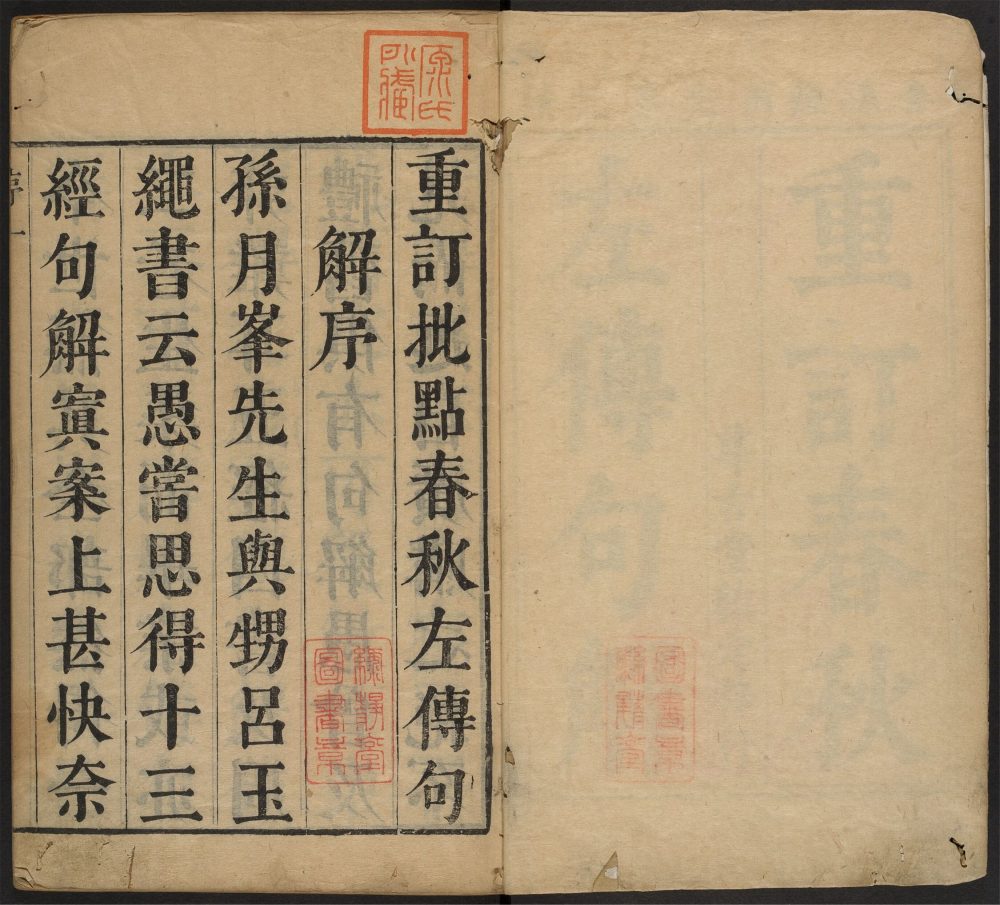 重訂批點春秋左傳句
解序
孫月峯先生與甥呂玉
繩書云愚嘗思得十三
經句解寘案上甚快奈
序 一
圖書章